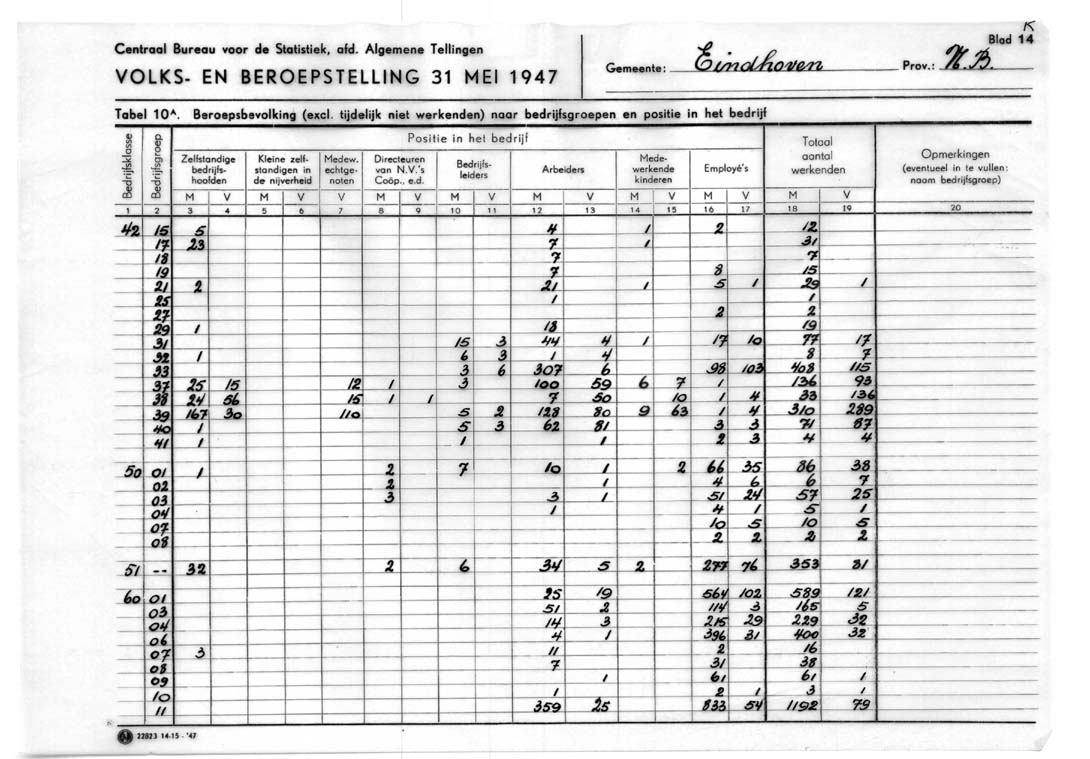 K
Blad 14
Centraal Bureau voor de Statistiek, afd. Algemene Tellingen
VOLKS- EN BEROEPSTELLING 31 MEI 1947
Gemeente: Eindhoven Prov.: N.B.
Tabel 10ᴬ. Beroepsbevolking (excl. tijdelijk niet werkenden) naar bedrijfsgroepen en positie in het bedrijf
Bedrijfsklasse Bedrijfsgroep Positie in het bedrijf Totaal aantal werkenden Opmerkingen (eventueel in te vullen: naam bedrijfsgroep)
Zelfstandige bedrijfs-hoofden Kleine zelf-standigen in de nijverheid Medew. echtge-noten Directeuren van N.V.'s Coöp., e.d. Bedrijfs-leiders Arbeiders Mede-werkende kinderen Employé's
M V M V V M V M V M V M V M V M V
1 2 3 4 5 6 7 8 9 10 11 12 13 14 15 16 17 18 19 20
42 15 5 4 1 2 12
17 23 7 1 31
18 7 7
19 7 8 15
21 2 21 1 5 1 29 1
25 1 1
27 2 2
29 1 18 19
31 15 3 44 4 1 17 10 77 17
32 1 6 3 1 4 8 7
33 3 6 307 6 98 103 408 115
37 25 15 12 1 3 100 59 6 7 1 136 93
38 24 56 15 1 1 7 50 10 1 4 33 136
39 167 30 110 5 2 128 80 9 63 1 4 310 289
40 1 5 3 62 81 3 3 71 87
41 1 1 1 2 3 4 4
50 01 1 2 7 10 1 2 66 35 86 38
02 2 1 4 6 6 7
03 3 3 1 51 24 57 25
04 1 4 1 5 1
07 10 5 10 5
08 2 2 2 2
51 -- 32 2 6 34 5 2 277 76 353 81
60 01 25 19 564 102 589 121
03 51 2 114 3 165 5
04 14 3 215 29 229 32
06 4 1 396 31 400 32
07 3 11 2 16
08 7 31 38
09 1 61 61 1
10 1 2 1 3 1
11 359 25 833 54 1192 79
22823 14-15 - '47